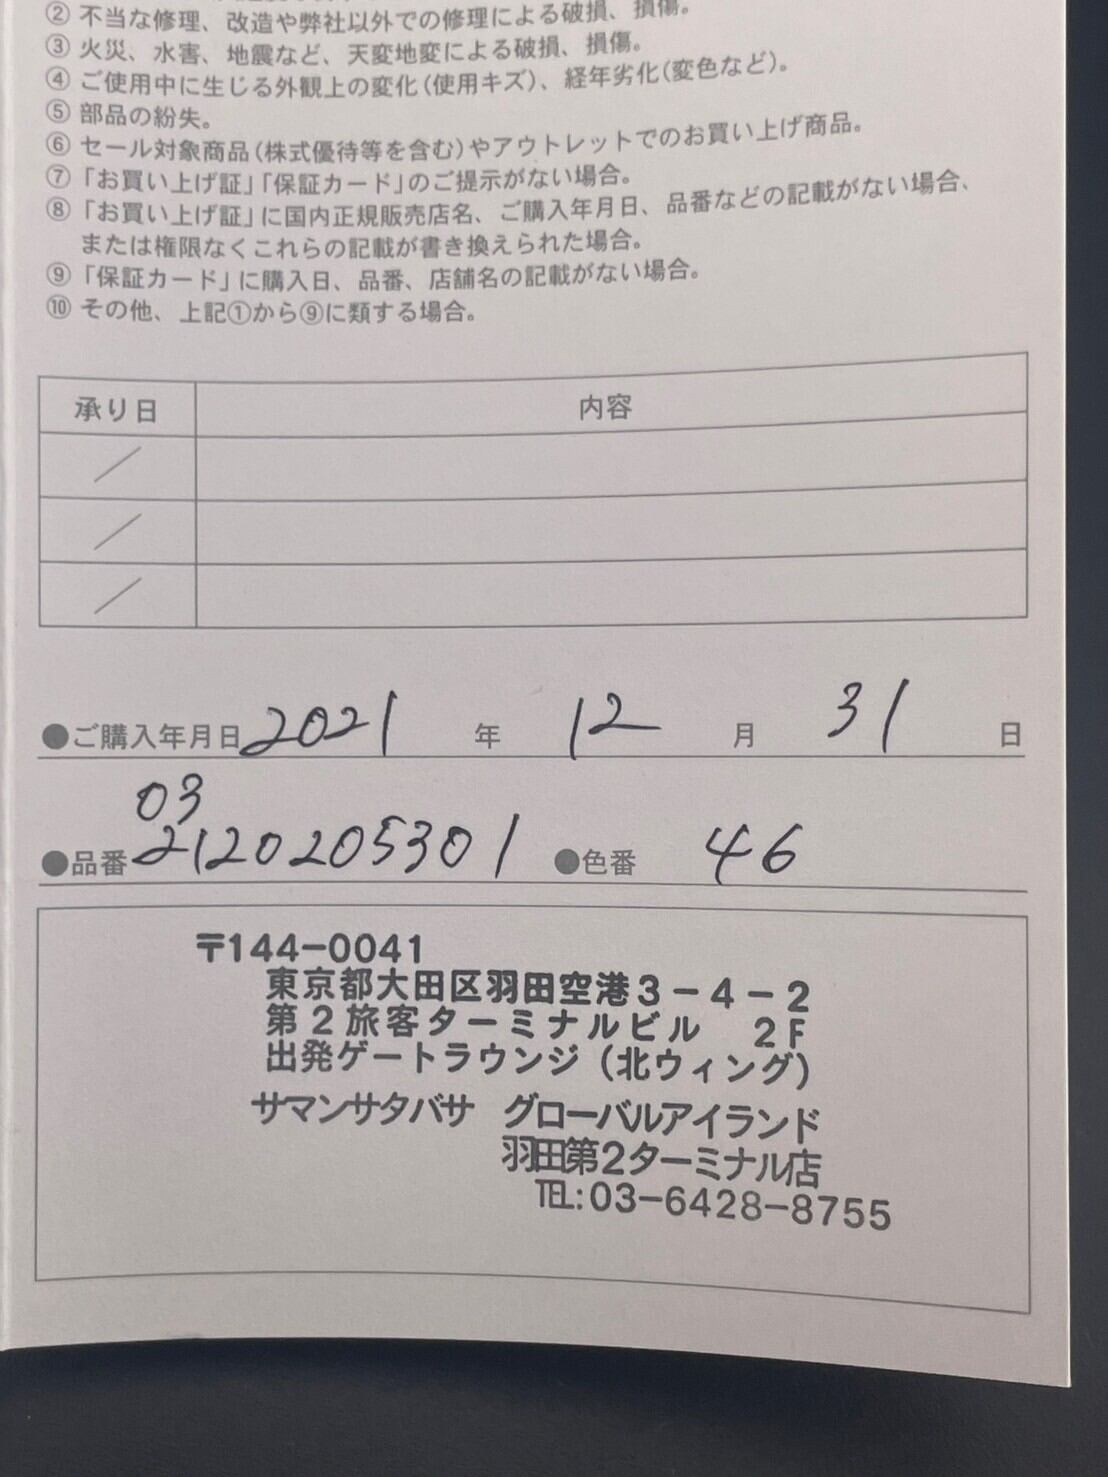 ② 不当な修理、改造や弊社以外での修理による破損、損傷。
③ 火災、水害、地震など、天変地変による破損、損傷。
④ ご使用中に生じる外観上の変化(使用キズ)、経年劣化(変色など)。
⑤ 部品の紛失。
⑥ セール対象商品(株式優待等を含む)やアウトレットでのお買い上げ商品。
⑦ 「お買い上げ証」「保証カード」のご提示がない場合。
⑧ 「お買い上げ証」に国内正規販売店名、ご購入年月日、品番などの記載がない場合、
または権限なくこれらの記載が書き換えられた場合。
⑨ 「保証カード」に購入日、品番、店舗名の記載がない場合。
⑩ その他、上記①から⑨に類する場合。
承り日 内容
／
／
／
●ご購入年月日 2021 年 12 月 31 日
03
●品番 2120205301 ●色番 46
〒144-0041
東京都大田区羽田空港3-4-2
第2旅客ターミナルビル 2F
出発ゲートラウンジ(北ウィング)
サマンサタバサ グローバルアイランド
羽田第2ターミナル店
TEL:03-6428-8755